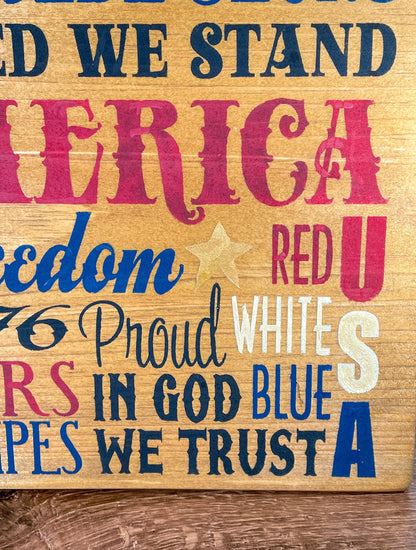 ED WE STAND
MERICA
eedom RED
76 Proud WHITE
RS IN GOD BLUE
IPES WE TRUST
USA